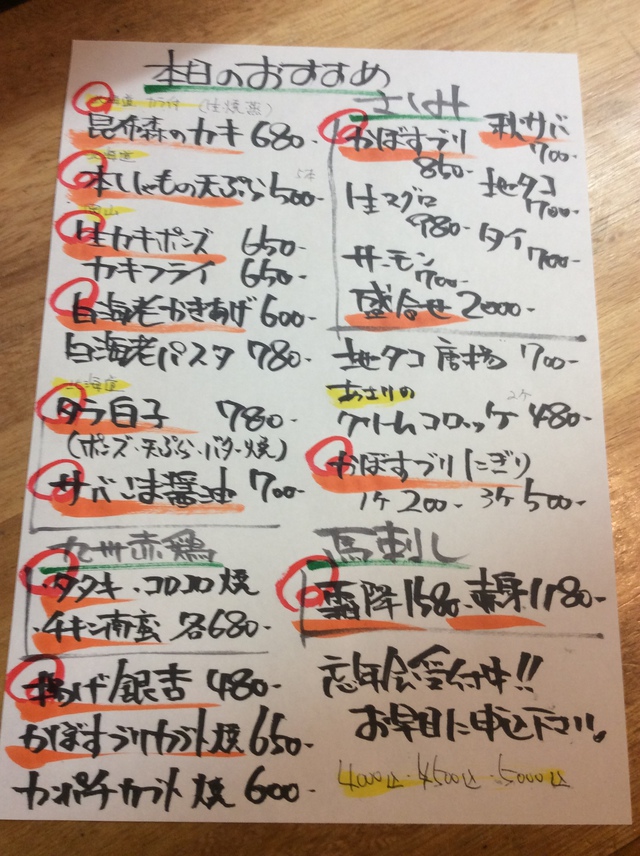 本日のおすすめ
北海道 カラ付 (生・焼・蒸)
昆布森のカキ 680-
北海道
本ししゃもの天ぷら 500-
岡山
生カキポンズ 650-
カキフライ 650-
白海老かきあげ 600-
白海老パスタ 780-
北海道
タラ白子 780-
(ポンズ・天ぷら・バター焼)
サバごま醤油 700-
九州赤鶏
・タタキ・コロコロ焼
・チキン南蛮 各680-
揚げ銀杏 480-
かぼすブリカブト焼 650-
カンパチカブト焼 600-
さしみ
かぼすブリ 850-
秋サバ 700-
生マグロ 980-
地タコ 700-
タイ 700-
サーモン 700-
盛合せ 2000-
地タコ唐揚 700-
あさりの 2ケ
クリームコロッケ 480-
かぼすブリにぎり
1ケ 200- 3ケ 500-
馬刺し
霜降 1580- 赤身 1180-
忘年会受付中!!
お早目に申込下さい。
4000込・4500込・5000込